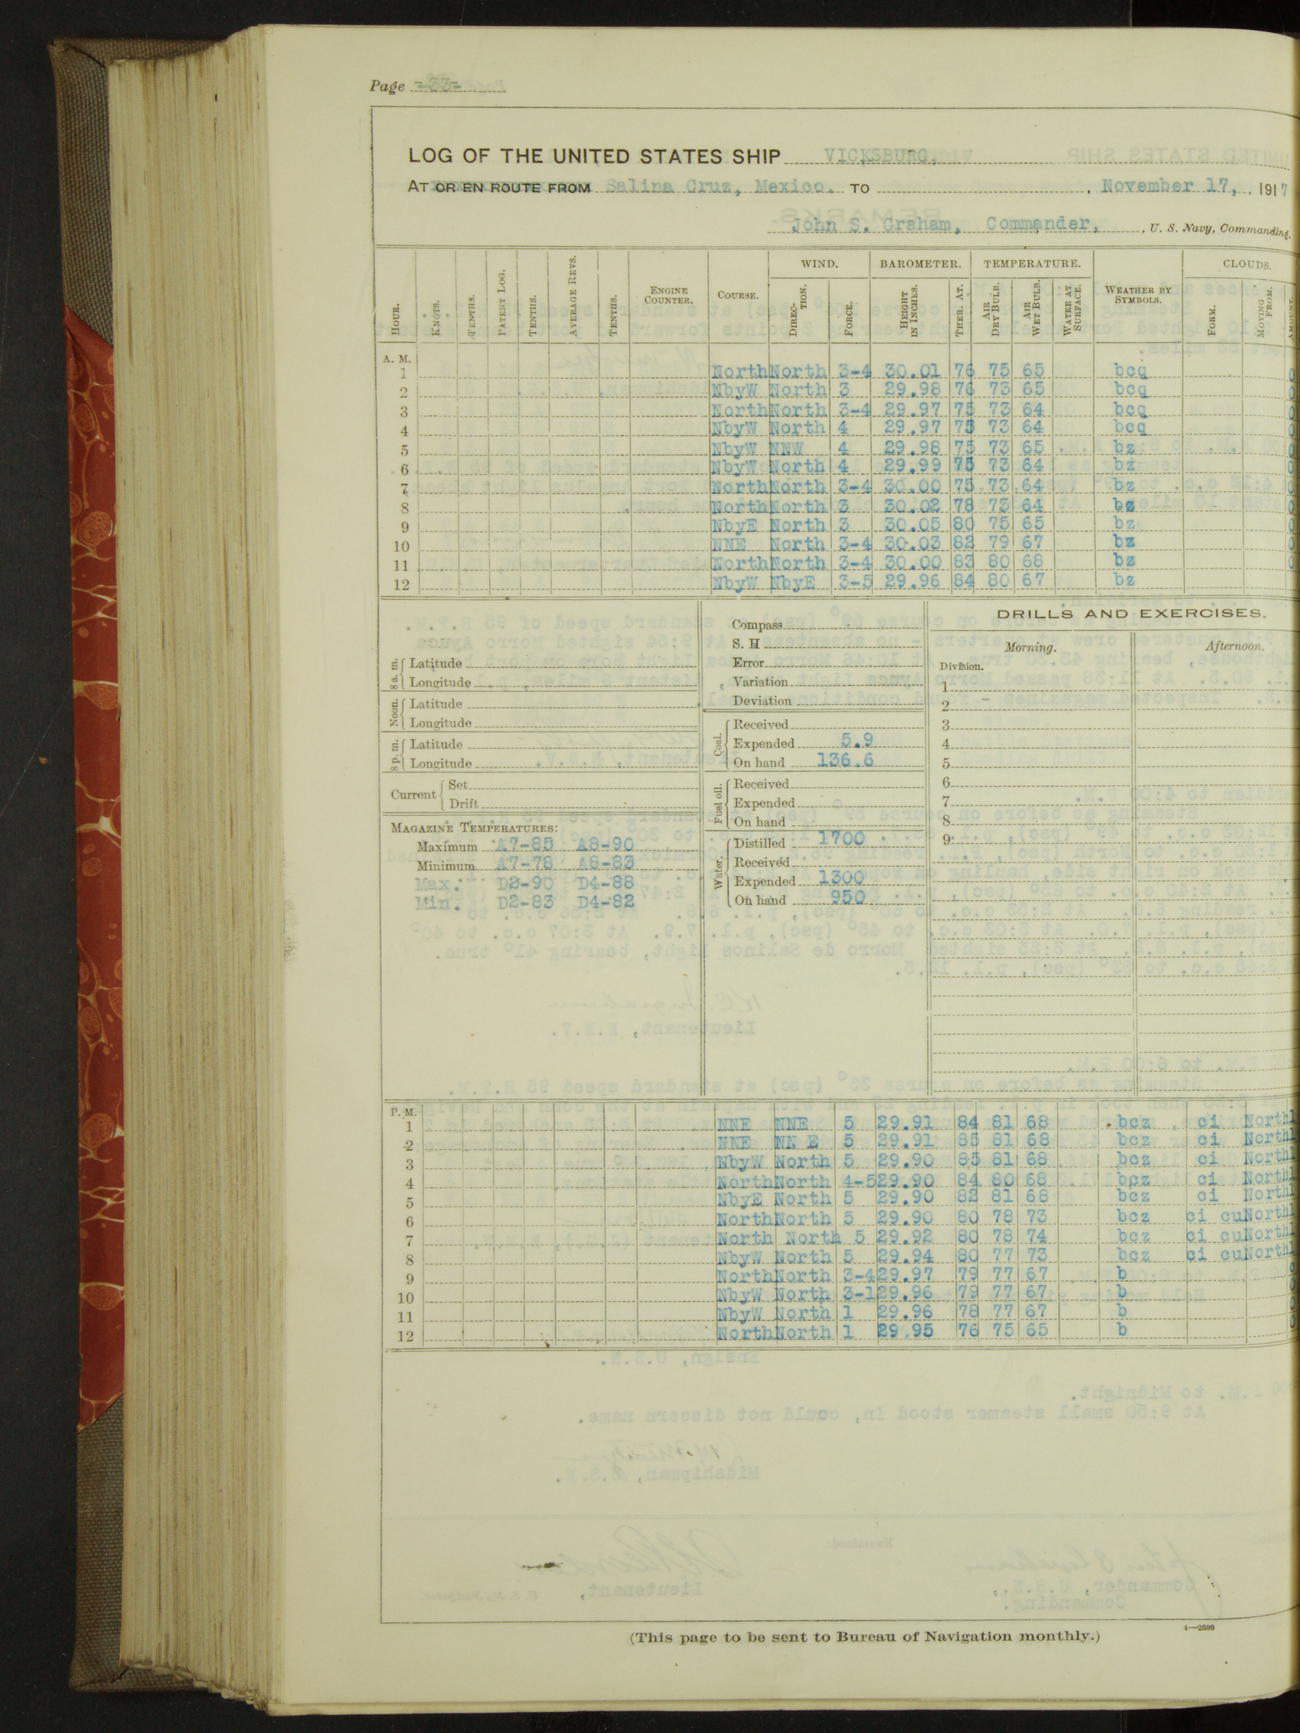 Page -33-
LOG OF THE UNITED STATES SHIP VICKSBURG,
AT OR EN ROUTE FROM Salina Cruz, Mexico. TO , November 17, , 1917
John S. Graham, Commander, , U. S. Navy, Commanding.
WIND. BAROMETER. TEMPERATURE. CLOUDS.
HOUR. KNOTS. TENTHS. PATENT LOG. TENTHS. AVERAGE REVS. TENTHS. ENGINE COUNTER. COURSE. DIRECTION. FORCE. HEIGHT IN INCHES. THER. AT. AIR DRY BULB. AIR WET BULB. WATER AT SURFACE. WEATHER BY SYMBOLS. FORM. MOVING FROM. AMOUNT.
A. M.
1 North North 3-4 30.01 76 75 65 bcq 0
2 NbyW North 3 29.98 76 73 65 bcq 0
3 North North 3-4 29.97 75 73 64 bcq 0
4 NbyW North 4 29.97 75 73 64 bcq 0
5 NbyW NNW 4 29.98 75 73 65 bz 0
6 NbyW North 4 29.99 75 73 64 bz 0
7 North North 3-4 30.00 75 73 64 bz 0
8 North North 3 30.02 78 73 64 bz 0
9 NbyE North 3 30.05 80 75 65 bz 0
10 NNE North 3-4 30.03 82 79 67 bz 0
11 North North 3-4 30.00 83 80 68 bz 0
12 NbyW NbyE 3-5 29.96 84 80 67 bz
8 a. m. Latitude
Longitude
Noon. Latitude
Longitude
8 p. m. Latitude
Longitude
Current Set
Drift
MAGAZINE TEMPERATURES:
Maximum A7-85 A8-90
Minimum A7-78 A8-83
Max. D2-90 D4-88
Min. D2-83 D4-82
Compass
S. H
Error
Variation
Deviation
Coal. Received
Expended 5.9
On hand 136.6
Fuel oil. Received
Expended
On hand
Water. Distilled 1700
Received
Expended 1300
On hand 950
DRILLS AND EXERCISES.
Morning. Afternoon.
Division.
1
2
3
4
5
6
7
8
9
P. M.
1 NNE NNE 5 29.91 84 81 68 bcz ci North 1
2 NNE NN E 5 29.91 85 81 68 bcz ci North 1
3 NbyW North 5 29.90 85 81 68 bcz ci North 1
4 North North 4-5 29.90 84 80 68 bcz ci North 1
5 NbyE North 5 29.90 82 81 68 bcz ci North 1
6 North North 5 29.90 80 78 73 bcz ci cu North 1
7 North North 5 29.92 80 78 74 bcz ci cu North 1
8 NbyW North 5 29.94 80 77 73 bcz ci cu North 1
9 North North 3-4 29.97 79 77 67 b 0
10 NbyW North 3-1 29.96 79 77 67 b 0
11 NbyW North 1 29.96 78 77 67 b 0
12 North North 1 29.95 76 75 65 b 0
(This page to be sent to Bureau of Navigation monthly.)
4—2599